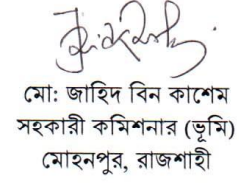 মো: জাহিদ বিন কাশেম
সহকারী কমিশনার (ভূমি)
মোহনপুর, রাজশাহী